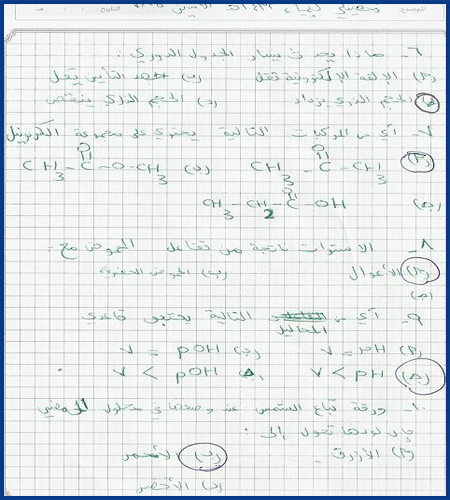 ٦- ماذا يحدث يسار الجدول الدوري :
(أ) الإلفة الإلكترونية تقل (ب) جهد التأين يقل
(ج) الحجم الذري يزداد (د) الحجم الذري ينقص
٧- أي من المركبات التالية يحتوي على مجموعة الكربونيل
(أ) CH3 - C - CH3 (ب) CH3 - C - O - CH3
O O
(ج) CH3 - CH2 - C - OH
O
٨- الاسترات ناتجة من تفاعل الحموض مع :
(أ) الأغوال (ب) الحموض
(ج)
٩- أي من المحاليل التالية يعتبر قاعدي
(أ) pH = ٧ (ب) pOH = ٧
(ج) pH > ٧ pOH > ٧
١٠- ورقة تباع الشمس عند وضعها في محلول الحمضي
فإن لونها تحول إلى :
(أ) الأزرق (ب) الأحمر
(د) الأخضر